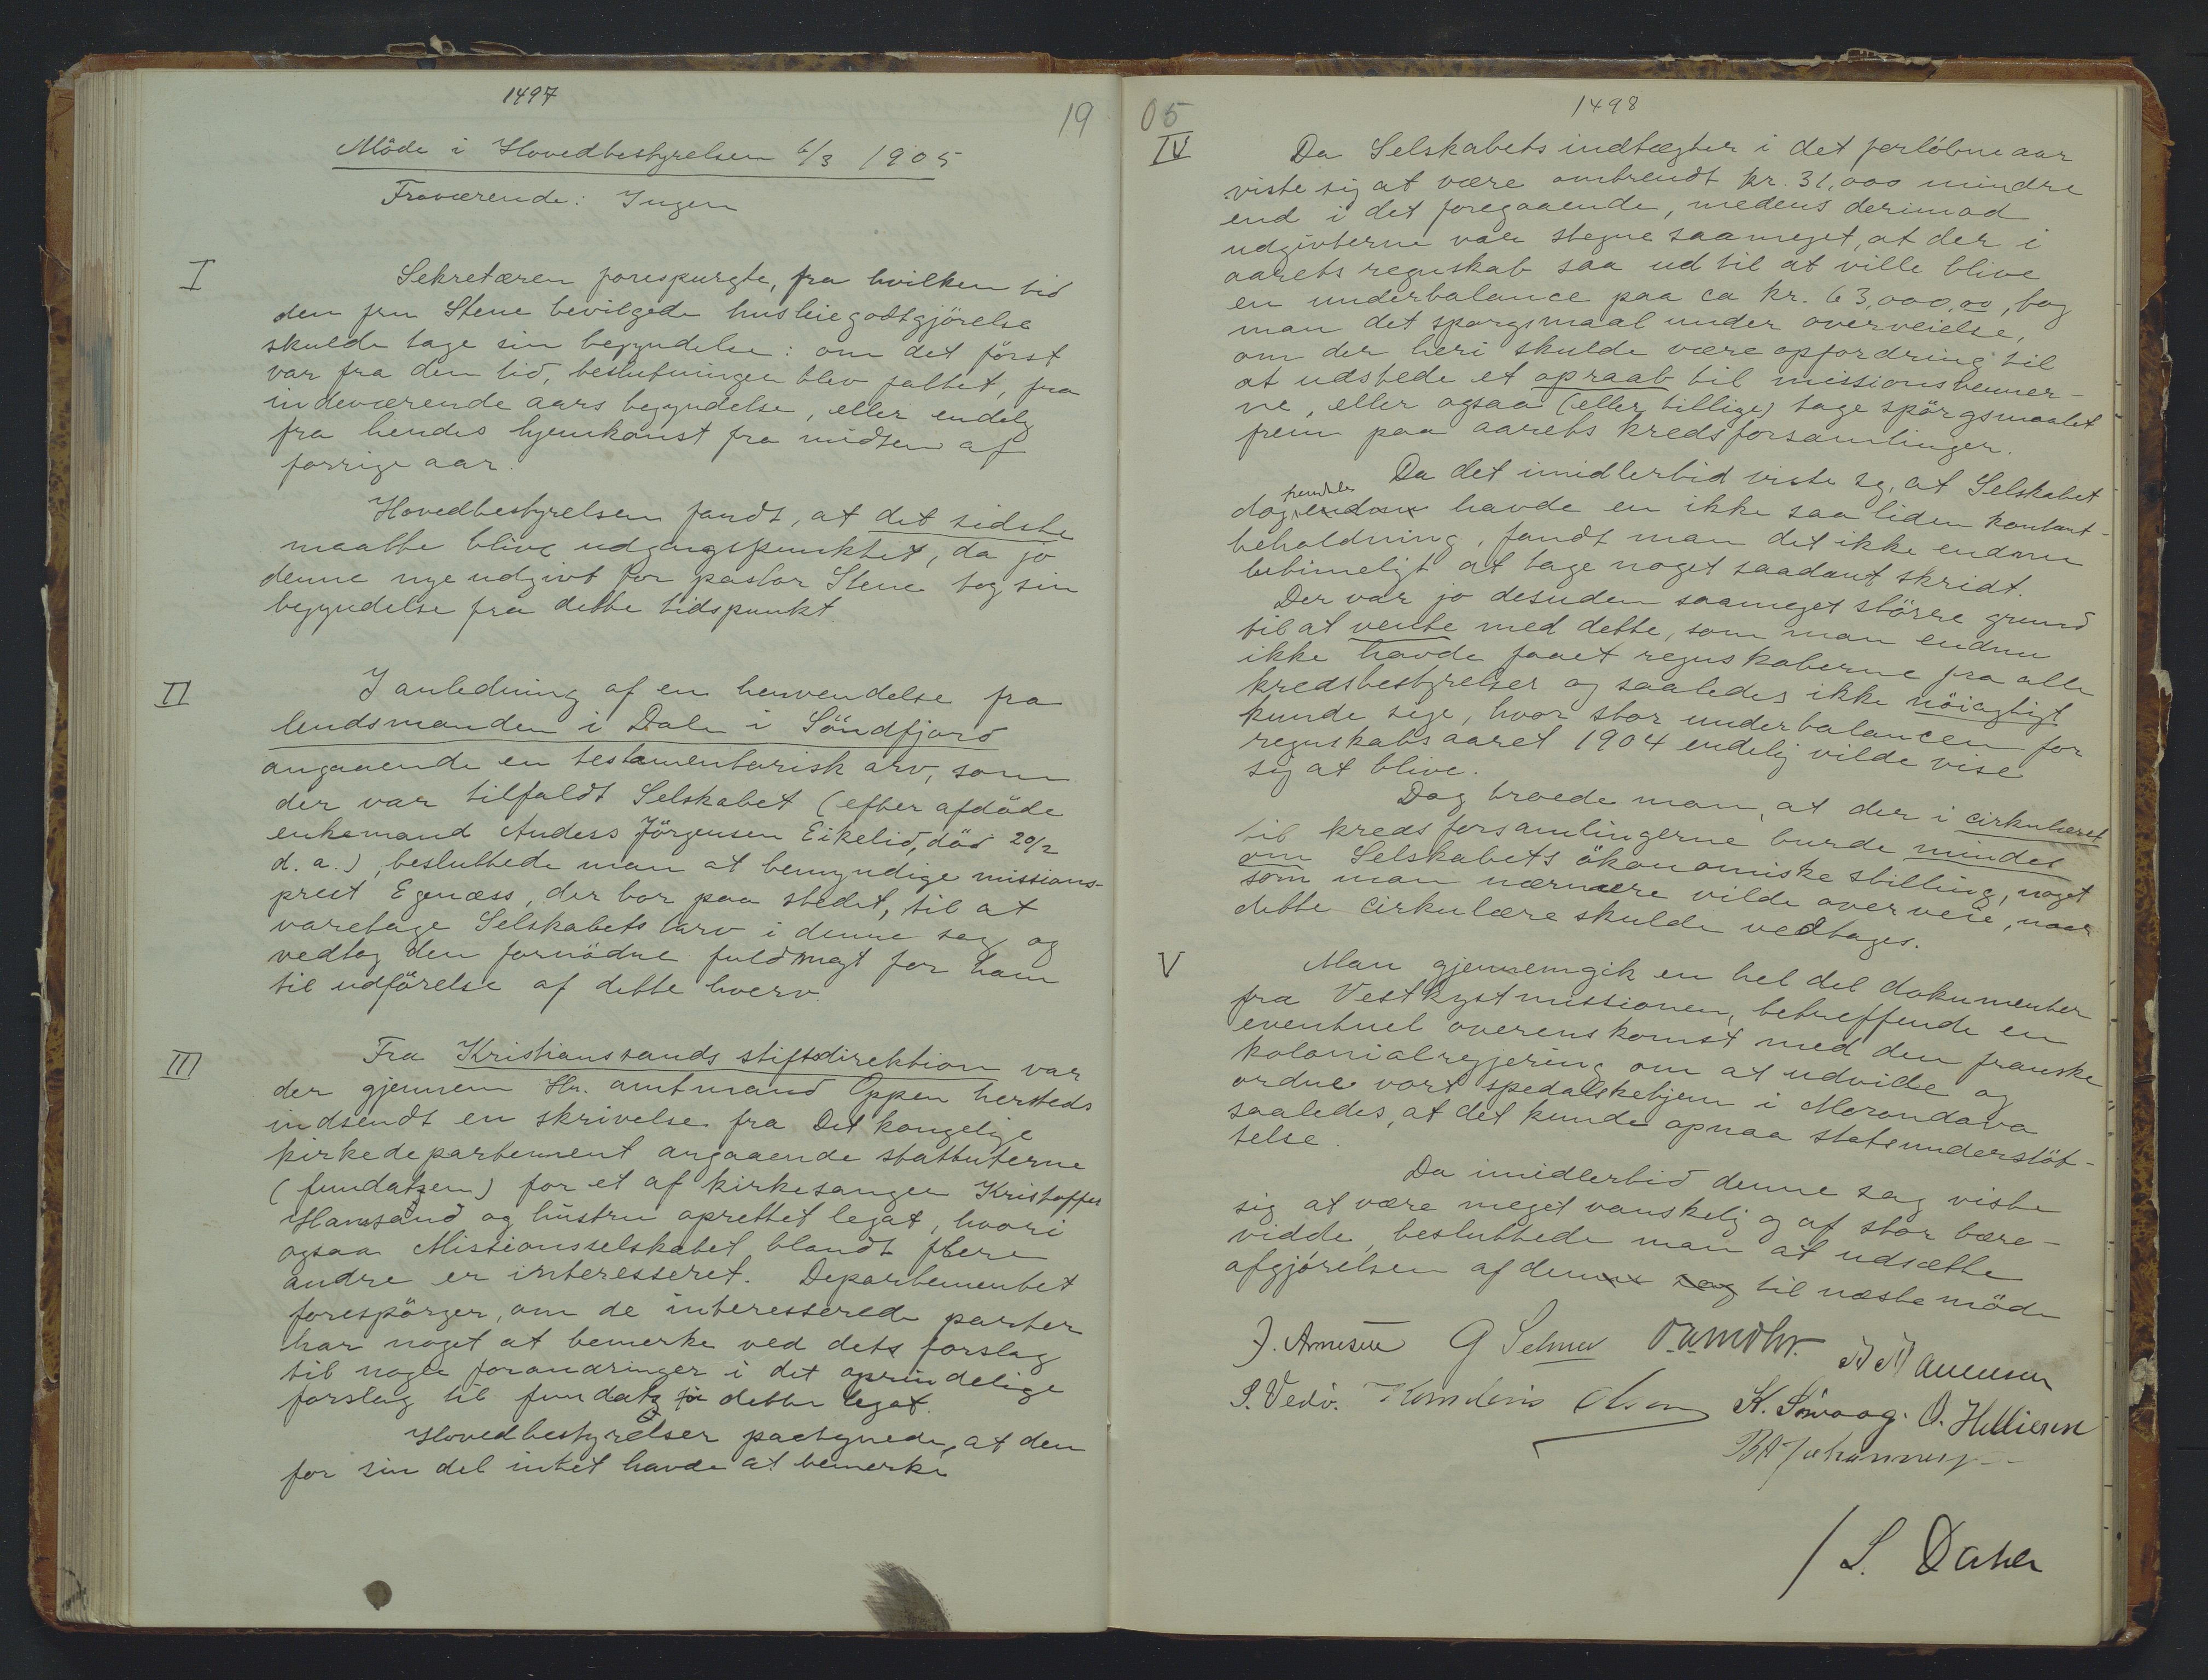 1497
19
Möde i Hovedbestyrelsen 6/3 1905
Fraværende: Ingen
I
Sekretæren forespurgte, fra hvilken tid
den fru Stene bevilgede husleiegodtgjörelse
skulde tage sin begyndelse: om det först
var fra den tid, beslutningen blev fattet, fra
indeværende aars begyndelse, eller endelig
fra hendes hjemkomst fra midten af
forrige aar.
Hovedbestyrelsen fandt, at det sidste
maatte blive udgangspunktet, da jo
denne nye udgivt for pastor Stene tog sin
begyndelse fra dette tidspunkt.
II
I anledning af en henvendelse fra
lendsmanden i Dale i Söndfjord
angaaende en testamentarisk arv, som
der var tilfaldt Selskabet (efter afdöde
enkemand Anders Jörgensen Eikelid, död 20/2
d. a.), besluttede man at bemyndige missions-
prest Egenæss, der bor paa stedet, til at
varetage Selskabets tarv i denne sag og
vedtog den fornödne fuldmagt for ham
til udförelse af dette hverv.
III
Fra Kristianssands stiftsdirektion var
der gjennem Hr. amtmand Oppen hersteds
indsendt en skrivelse fra Det kongelige
kirkedepartement angaaende statuterne
(fundatsen) for et af kirkesanger Kristoffer
Hanssand og hustru oprettet legat, hvori
ogsaa Missionsselskabet blandt flere
andre er interesseret. Departementet
forespörger, om de interesserede parter
har noget at bemerke ved dets forslag
til nogle forandringer i det oprindelige
forslag til fundats for dette legat.
Hovedbestyrelsen paategnede, at den
for sin del intet havde at bemerke
1498
05
IV
Da Selskabets indtægter i det forlöbne aar
viste sig at være omtrendt kr. 31,000 mindre
end i det foregaaende, medens derimod
udgivterne var stegne saameget, at der i
aarets regnskab saa ud til at ville blive
en underbalance paa ca kr. 63,000,00, tog
man det spørgsmaal under overveielse,
om der heri skulde være opfordring til
at udstede et opraab til missionsvenner-
ne, eller ogsaa (eller tillige) tage spörgsmaalet
frem paa aarets kredsforsamlinger.
Da det imidlertid viste sig, at Selskabet
fremdeles
dog endnu havde en ikke saa liden kontant-
beholdning, fandt man det ikke endnu
betimeligt at tage noget saadant skridt.
Der var jo desuden saameget större grund
til at vente med dette, som man endnu
ikke havde faaet regnskaberne fra alle
kredsbestyrelser og saaledes ikke nöiagtigt
kunde sige, hvor stor underbalancen for
regnskabsaaret 1904 endelig vilde vise
sig at blive.
Dog troede man, at der i cirkulæret
til kredsforsamlingerne burde mindes
om Selskabets ökonomiske stilling, noget
som man nærmere vilde overveie, naar
dette cirkulære skulde vedtages.
V
Man gjennemgik en hel del dokumenter
fra Vestkystmissionen, betreffende en
eventuel overenskomst med den franske
kolonialregjering om at udvide og
ordne vort spedalskehjem i Morondava
saaledes, at det kunde opnaa statsunderstöt-
telse.
Da imidlertid denne sag viste
sig at være meget vanskelig og af stor bære-
vidde, besluttede man at udsætte
afgjörelsen af denne sag til næste möde
J. Arnesen G Selmer
S. Vedö. Olsen
/ S. Dahle